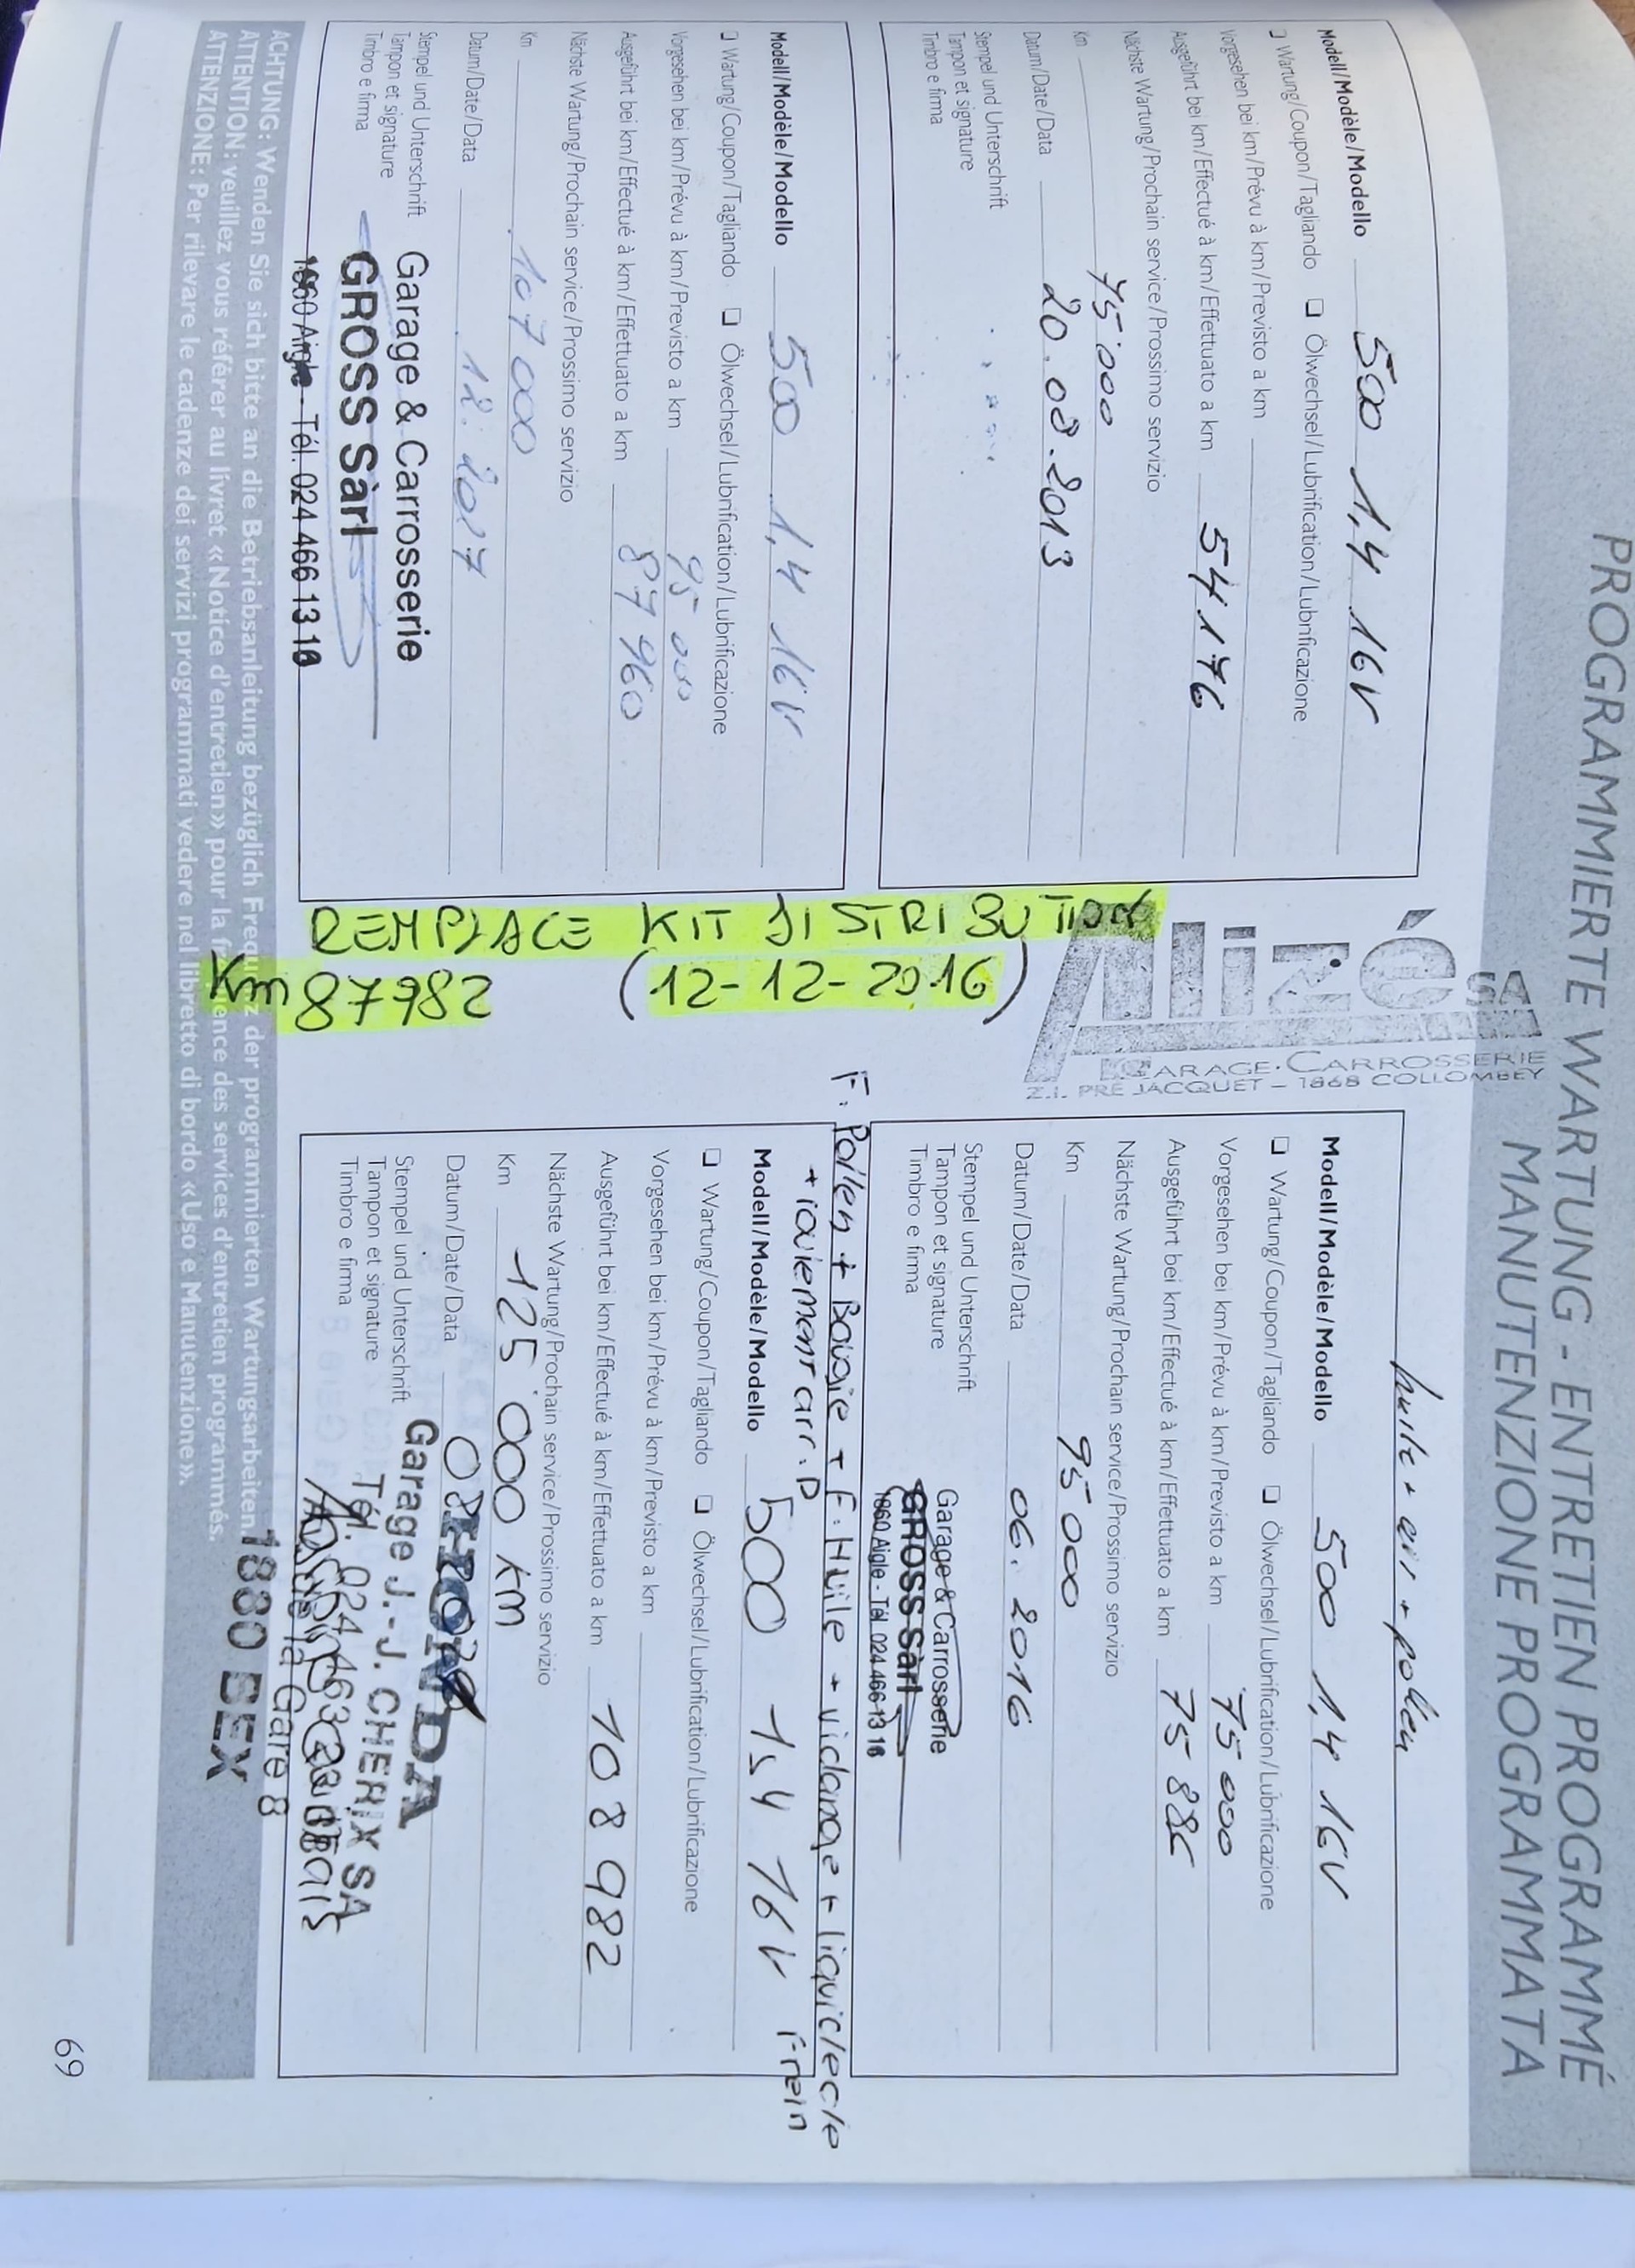 PROGRAMMIERTE WARTUNG - ENTRETIEN PROGRAMMÉ
MANUTENZIONE PROGRAMMATA
Modell/Modèle/Modello 500 1,4 16V
❑ Wartung/Coupon/Tagliando ❑ Ölwechsel/Lubrification/Lubrificazione
Vorgesehen bei km/Prévu à km/Previsto a km
Ausgeführt bei km/Effectué à km/Effettuato a km 54176
Nächste Wartung/Prochain service/Prossimo servizio
Km 75'000
Datum/Date/Data 20.08.2013
Stempel und Unterschrift
Tampon et signature
Timbro e firma
Alizé SA
GARAGE-CARROSSERIE
Z.I. PRÉ JACQUET – 1868 COLLOMBEY
huile + air + pollen
Modell/Modèle/Modello 500 1,4 16V
❑ Wartung/Coupon/Tagliando ❑ Ölwechsel/Lubrification/Lubrificazione
Vorgesehen bei km/Prévu à km/Previsto a km 75 000
Ausgeführt bei km/Effectué à km/Effettuato a km
Nächste Wartung/Prochain service/Prossimo servizio
Km 95 000
Datum/Date/Data 06. 2016
Stempel und Unterschrift
Tampon et signature
Timbro e firma
Garage & Carrosserie
GROSS Sàrl
1860 Aigle - Tél. 024 466 13 16
Modell/Modèle/Modello 500 1,4 16V
❑ Wartung/Coupon/Tagliando ❑ Ölwechsel/Lubrification/Lubrificazione
Vorgesehen bei km/Prévu à km/Previsto a km 95 000
Ausgeführt bei km/Effectué à km/Effettuato a km 87 960
Nächste Wartung/Prochain service/Prossimo servizio
Km 107 000
Datum/Date/Data 12. 2017
Stempel und Unterschrift
Tampon et signature
Timbro e firma
Garage & Carrosserie
GROSS Sàrl
1860 Aigle - Tél. 024 466 13 16
REMPLACE KIT DISTRIBUTION
Km 87982 (12-12-2016)
F. Pollen + Bougie + F. Huile + vidange + liquide de frein
+ roulement arr. D
Modell/Modèle/Modello 500 1,4 16V
❑ Wartung/Coupon/Tagliando ❑ Ölwechsel/Lubrification/Lubrificazione
Vorgesehen bei km/Prévu à km/Previsto a km
Ausgeführt bei km/Effectué à km/Effettuato a km 108 982
Nächste Wartung/Prochain service/Prossimo servizio
Km 125'000 km
Datum/Date/Data
Stempel und Unterschrift
Tampon et signature
Timbro e firma
Garage J.-J. CHERIX SA
Tél. 024 463
la Gare 8
1880 BEX
ACHTUNG: Wenden Sie sich bitte an die Betriebsanleitung bezüglich Frequenz der programmierten Wartungsarbeiten.
ATTENTION: veuillez vous référer au livret «Notice d'entretien» pour la fréquence des services d'entretien programmés.
ATTENZIONE: Per rilevare le cadenze dei servizi programmati vedere nel libretto di bordo «Uso e Manutenzione».
69